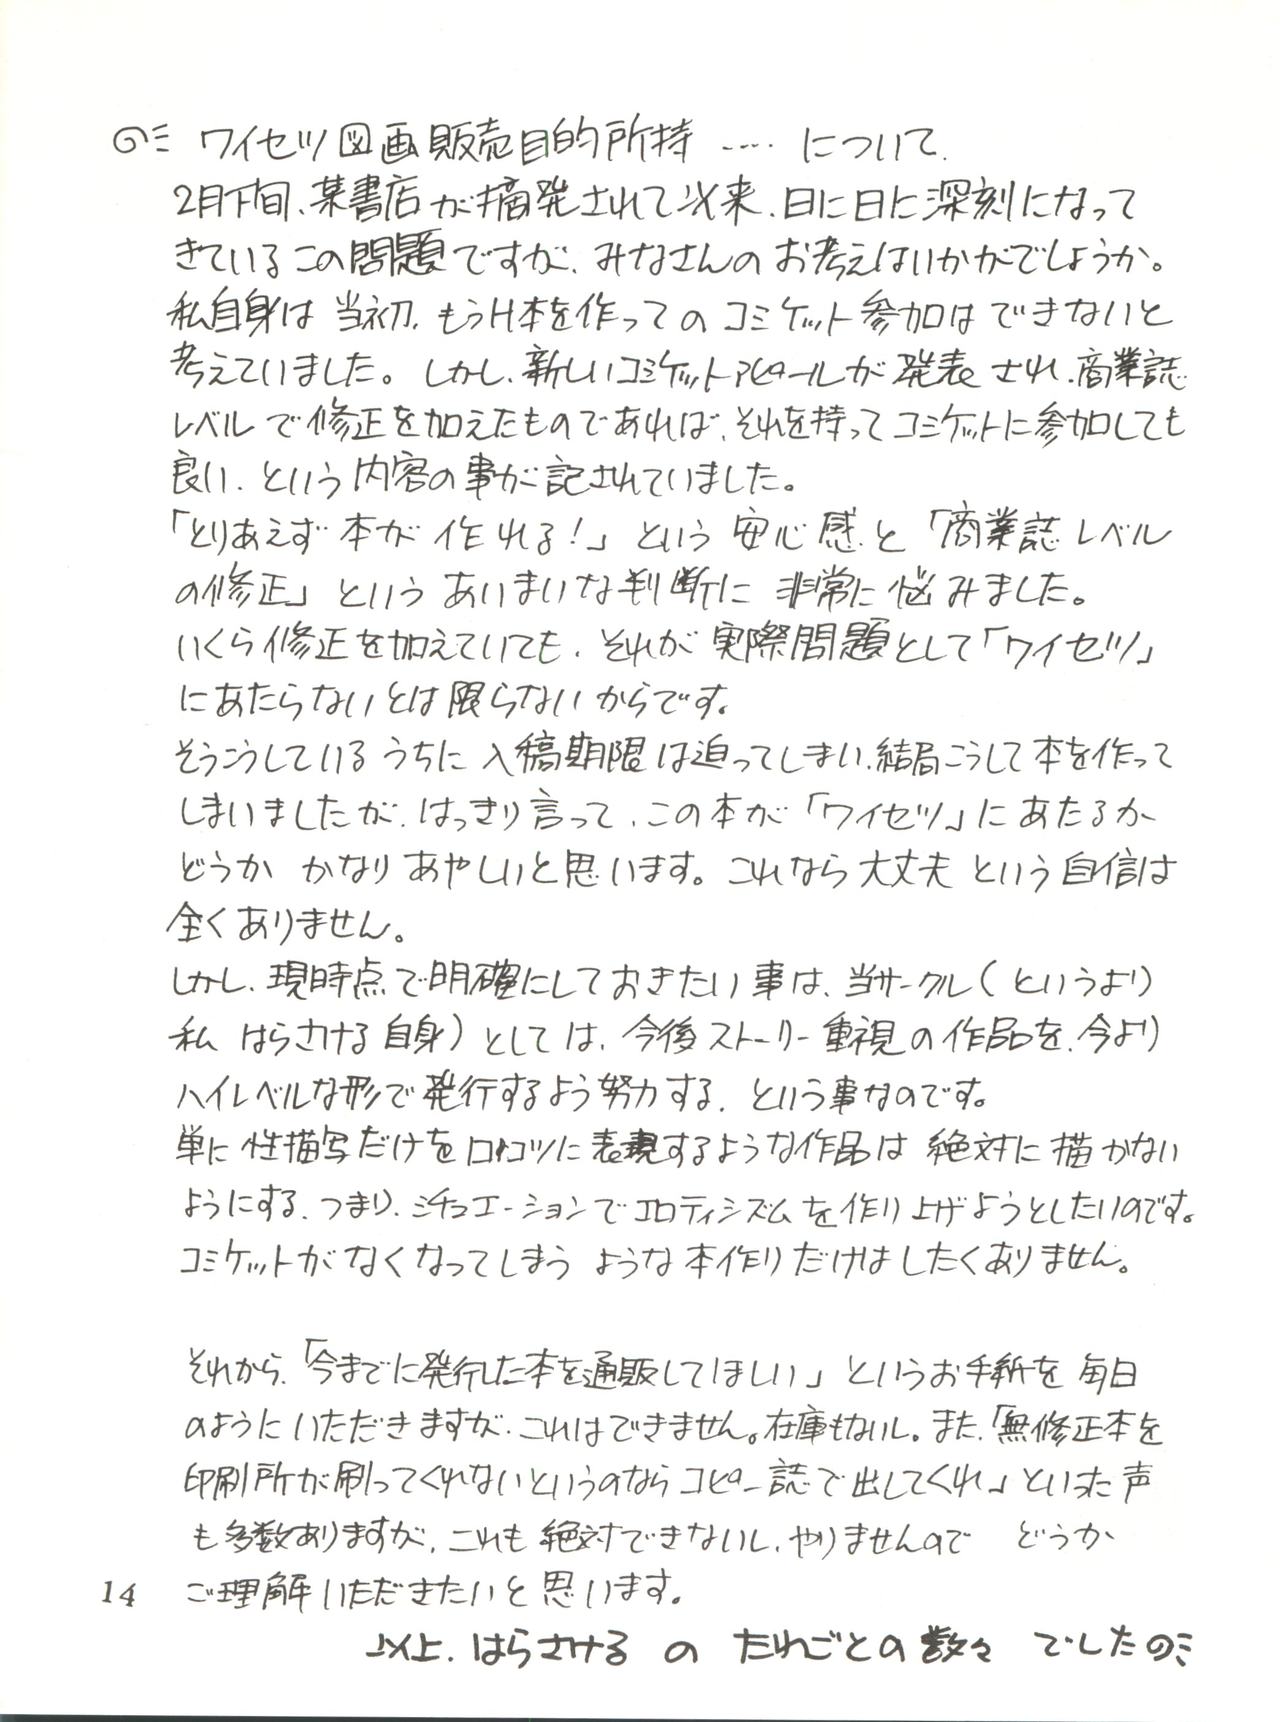 ワイセツ図画販売目的所持 ‥‥ について.
2月下旬、某書店が摘発されて以来、日に日に深刻になって
きているこの問題ですが、みなさんのお考えはいかがでしょうか。
私自身は当初、もうH本を作ってのコミケット参加はできないと
考えていました。しかし、新しいコミケットアピールが発表され、商業誌
レベルで修正を加えたものであれば、それを持ってコミケットに参加しても
良い、という内容の事が記されていました。
「とりあえず本が作れる!」という安心感と「商業誌レベル
の修正」というあいまいな判断に非常に悩みました。
いくら修正を加えていても、それが実際問題として「ワイセツ」
にあたらないとは限らないからです。
そうこうしているうちに入稿期限は迫ってしまい、結局こうして本を作って
しまいましたが、はっきり言って、この本が「ワイセツ」にあたるか
どうかかなりあやしいと思います。これなら大丈夫という自信は
全くありません。
しかし、現時点で明確にしておきたい事は、当サークル(というより
私はらさける自身)としては、今後ストーリー重視の作品を、今より
ハイレベルな形で発行するよう努力する、という事なのです。
単に性描写だけをロコツに表現するような作品は絶対に描かない
ようにする、つまり、シチュエーションでエロティシズムを作り上げようとしたいのです。
コミケットがなくなってしまうような本作りだけはしたくありません。
それから、「今までに発行した本を通販してほしい」というお手紙を毎日
のようにいただきますが、これはできません。在庫もないし。また、「無修正本を
印刷所が刷ってくれないというのならコピー誌で出してくれ」といった声
も多数ありますが、これも絶対できないし、やりませんのでどうか
ご理解いただきたいと思います。
14
以上、はらさけるのたわごとの数々でしたの